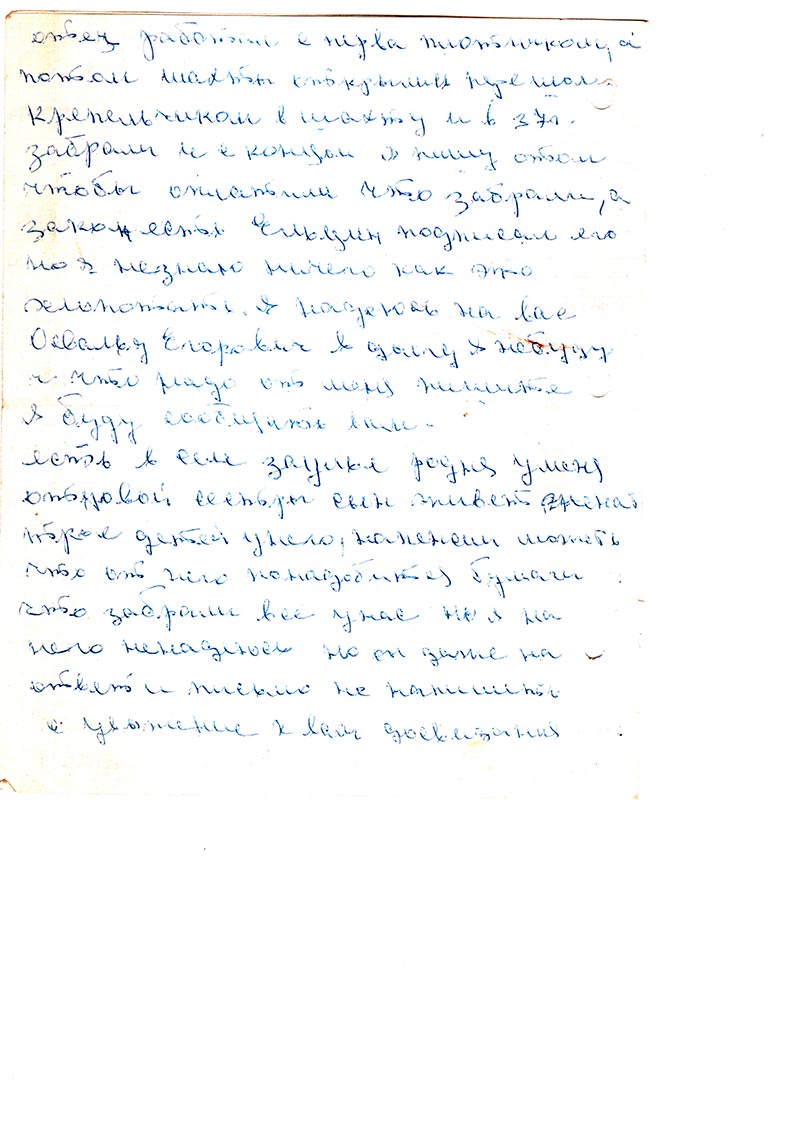 отец работал с перва плотником, а
потом шахты открыли перешол
крепельчиком в шахту и в 37г.
забрали и с концом я пишу отом
чтобы оплатили что забрали, а
закон есть Ельцин подписал его
но я незнаю ничего как это
хлопотать. я надеюсь на вас
Освальд Егорович в долгу я небуду
и что надо от меня пишите
я буду сообщать вам.
есть в селе родня уменя
отцовой сестры сын живет
трое детей унего, напенсии может
что от него понадобится бумаги
что забрали все унас но я на
него ненадеюсь но он даже на
ответ и письмо не напишить
с уважение к вам досвидания